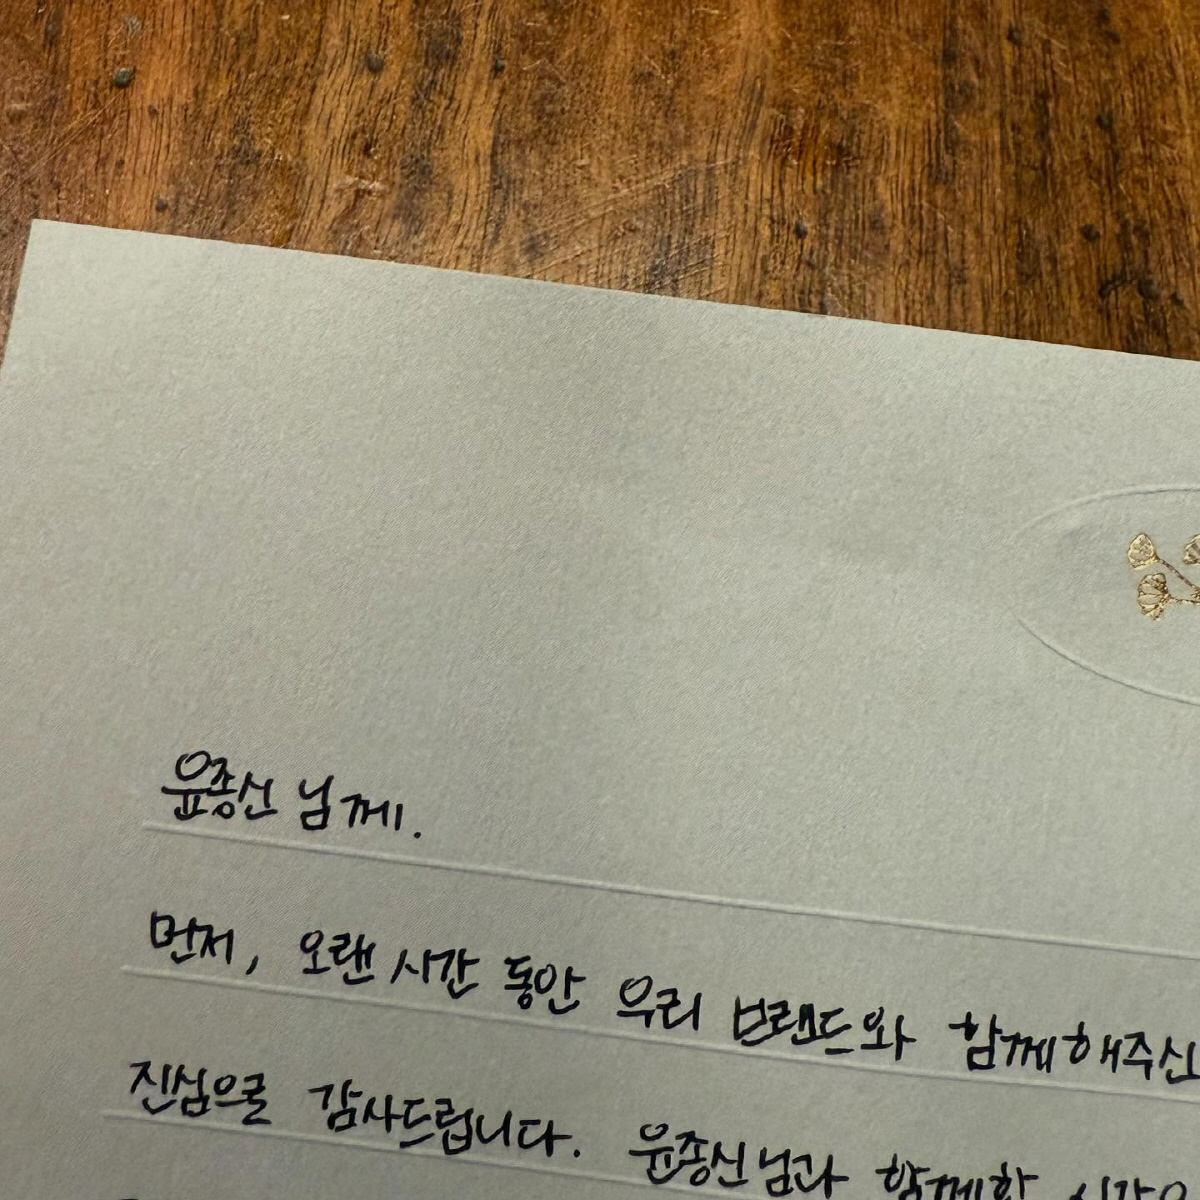 윤종신 님께.
먼저, 오랜 시간 동안 우리 브랜드와 함께해주신
진심으로 감사드립니다. 윤종신님과 함께한 시간은